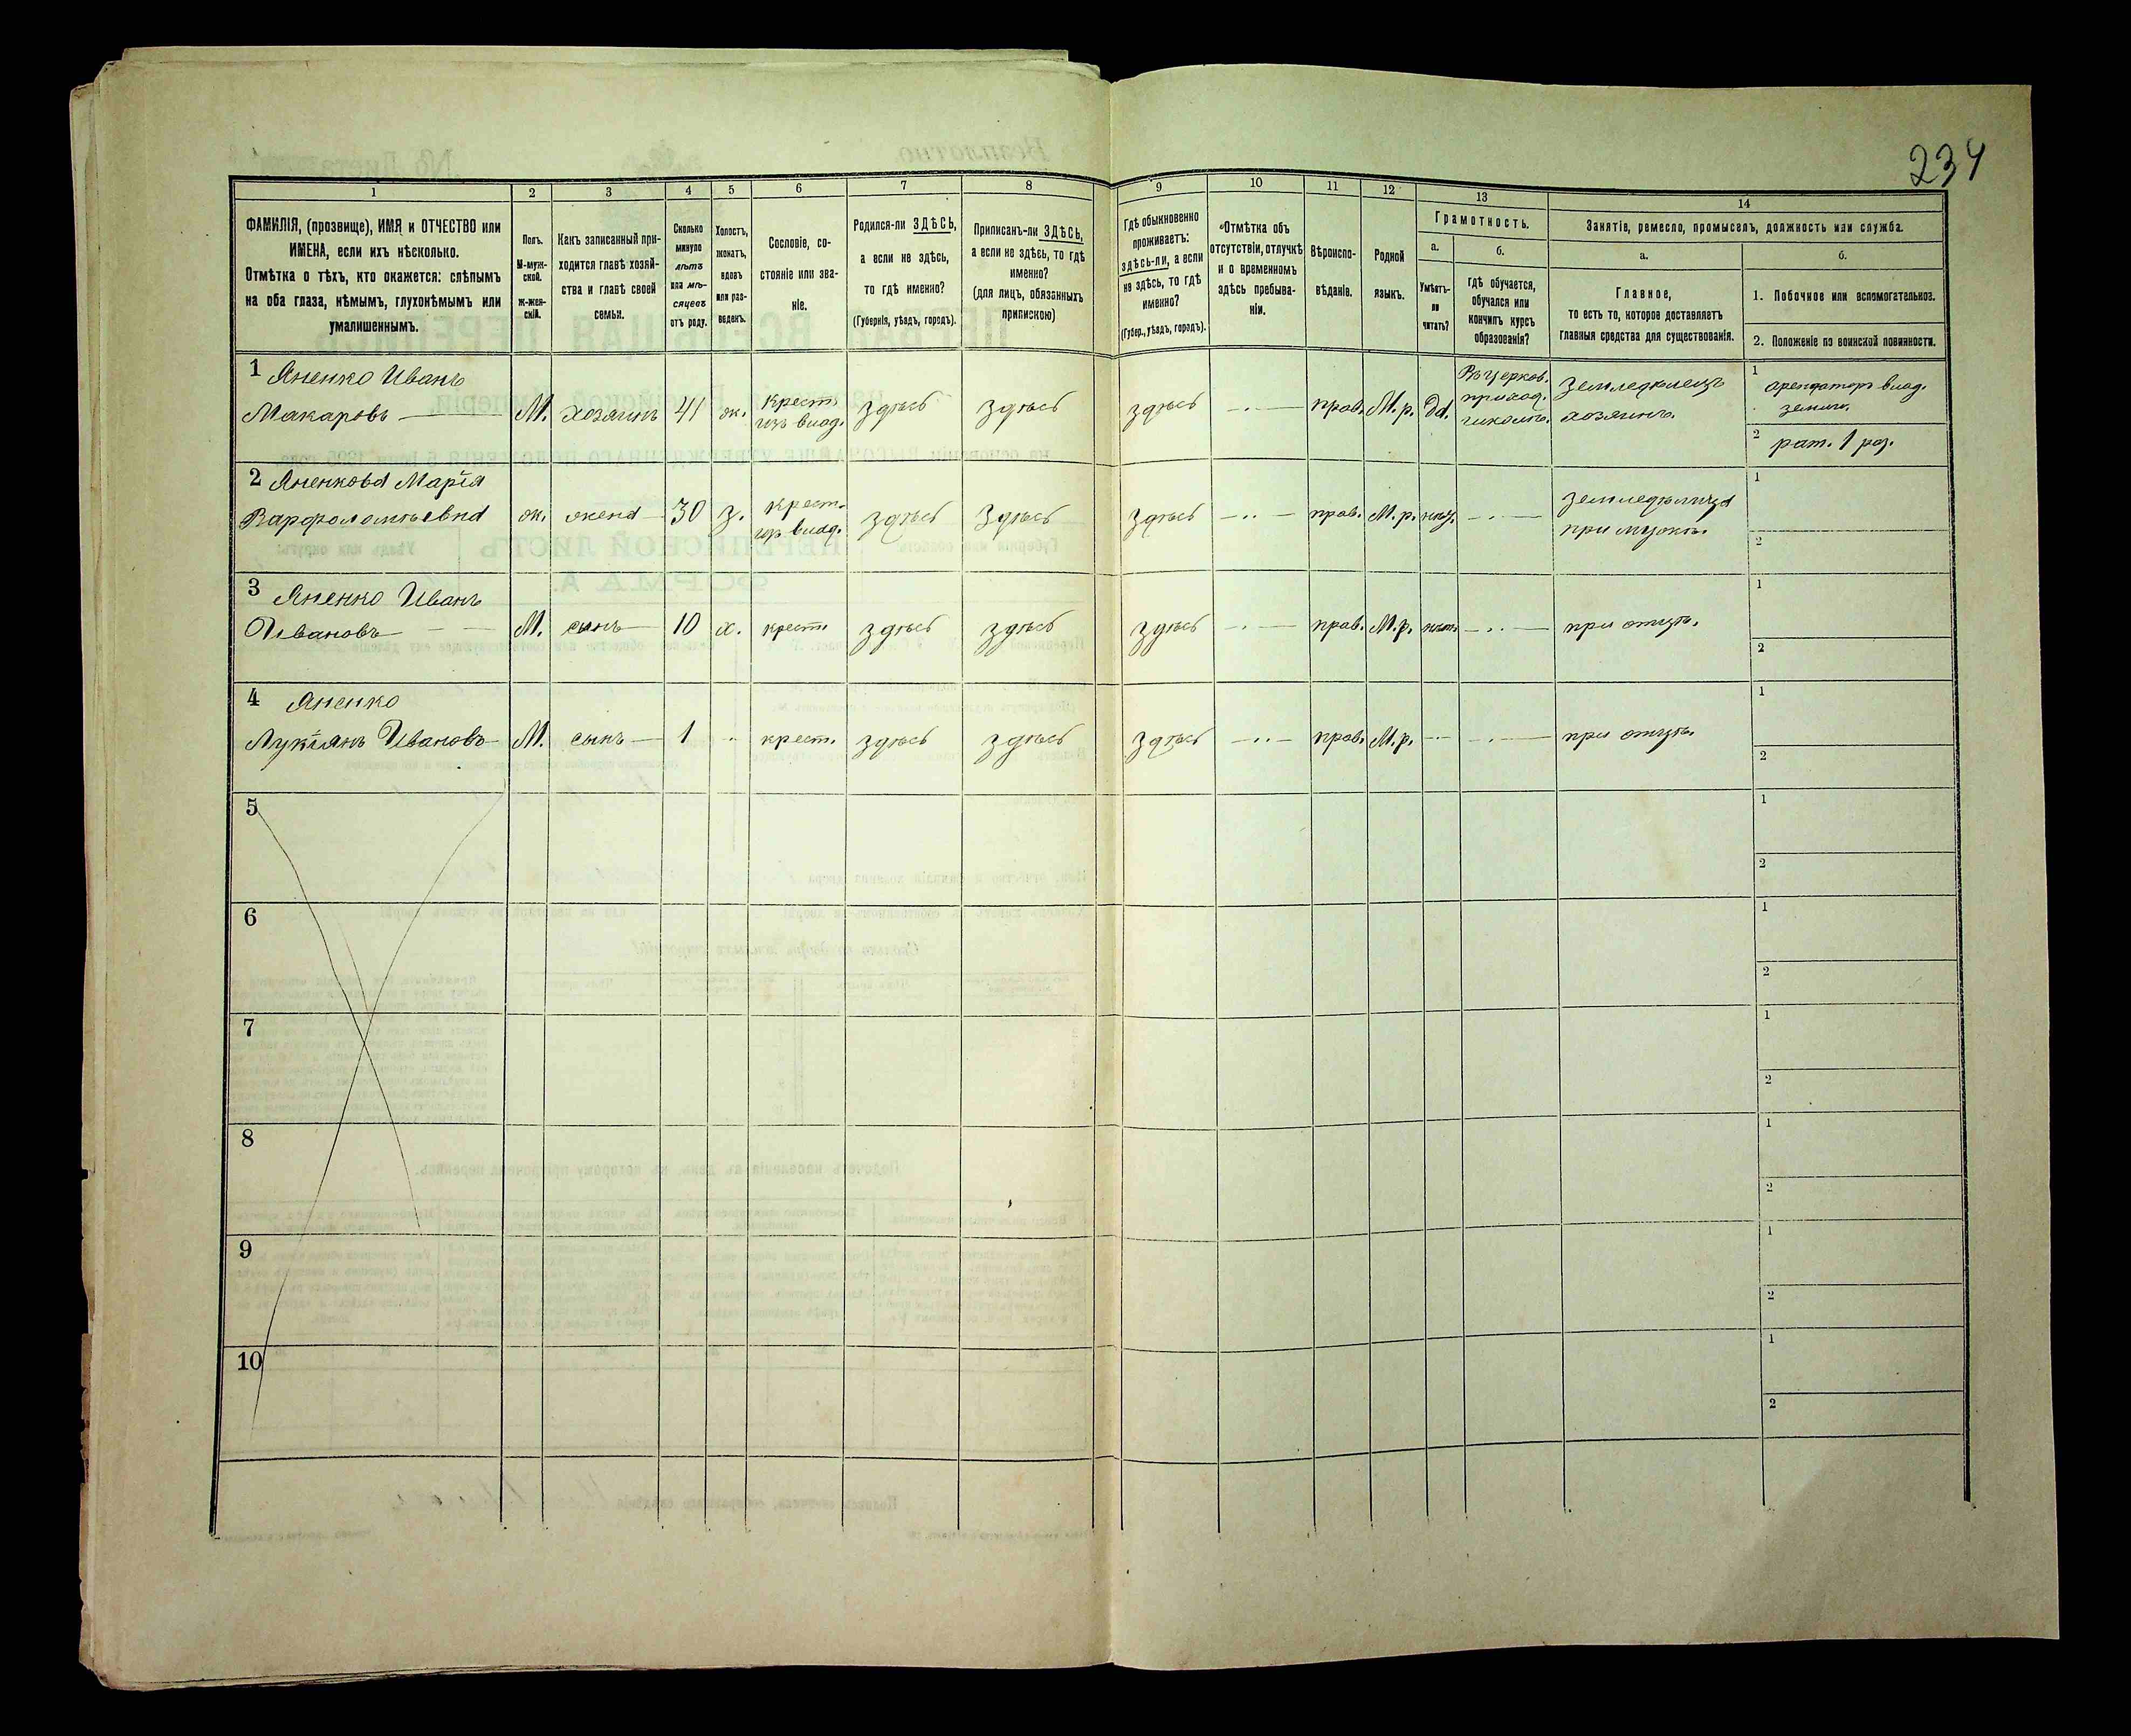 234
1
2
3
4
5
6
7
8
9
10
11
12
13
14
ФАМИЛІЯ, (прозвище), ИМЯ и ОТЧЕСТВО или
ИМЕНА, если ихъ нѣсколько.
Отмѣтка о тѣхъ, кто окажется: слѣпымъ
на оба глаза, нѣмымъ, глухонѣмымъ или
умалишеннымъ.
Полъ.
М-муж-
ской.
Ж-жен-
скій.
Какъ записанный при-
ходится главѣ хозяй-
ства и главѣ своей
семьи.
Сколько
минуло
лѣтъ
или мѣ-
сяцевъ
отъ роду.
Холостъ,
женатъ,
вдовъ
или раз-
веденъ.
Сословіе, со-
стояніе или зва-
ніе.
Родился-ли ЗДѢСЬ,
а если не здѣсь,
то гдѣ именно?
(Губернія, уѣздъ, городъ).
Приписанъ-ли ЗДѢСЬ,
а если не здѣсь, то гдѣ
именно?
(для лицъ, обязанныхъ
припискою)
Гдѣ обыкновенно
проживаетъ:
здѣсь-ли, а если
не здѣсь, то гдѣ
именно?
(Губер., уѣздъ, городъ).
Отмѣтка объ
отсутствіи, отлучкѣ
и о временномъ
здѣсь пребыва-
ніи.
Вѣроиспо-
вѣданіе.
Родной
языкъ.
Грамотность.
а.
Умѣетъ-
ли
читать?
б.
Гдѣ обучается,
обучался или
кончилъ курсъ
образованія?
Занятіе, ремесло, промыселъ, должность или служба.
а.
Главное,
то есть то, которое доставляетъ
главныя средства для существованія.
б.
1. Побочное или вспомогательное.
2. Положеніе по воинской повинности.
1 Яненко Иванъ
Макаровъ
М.
хозяинъ
41
ж.
крест.
изъ влад.
здѣсь
здѣсь
здѣсь
прав.
М.р.
Да.
Въ церков.
приход.
школѣ.
Земледѣлецъ
хозяинъ.
1
арендаторъ влад.
земли.
2
рат. 1 раз.
2 Яненкова Марія
Варфоломѣевна
ж.
жена
30
з.
крест.
изъ влад.
здѣсь
здѣсь
здѣсь
прав.
М.р.
нѣт.
земледѣлица
при мужѣ.
1
2
3 Яненко Иванъ
Ивановъ
М.
сынъ
10
х.
крест.
здѣсь
здѣсь
здѣсь
прав.
М.р.
нѣт.
при отцѣ.
1
2
4 Яненко
Лукіянъ Ивановъ
М.
сынъ
1
крест.
здѣсь
здѣсь
здѣсь
прав.
М.р.
при отцѣ.
1
2
5
1
2
6
1
2
7
1
2
8
1
2
9
1
2
10
1
2